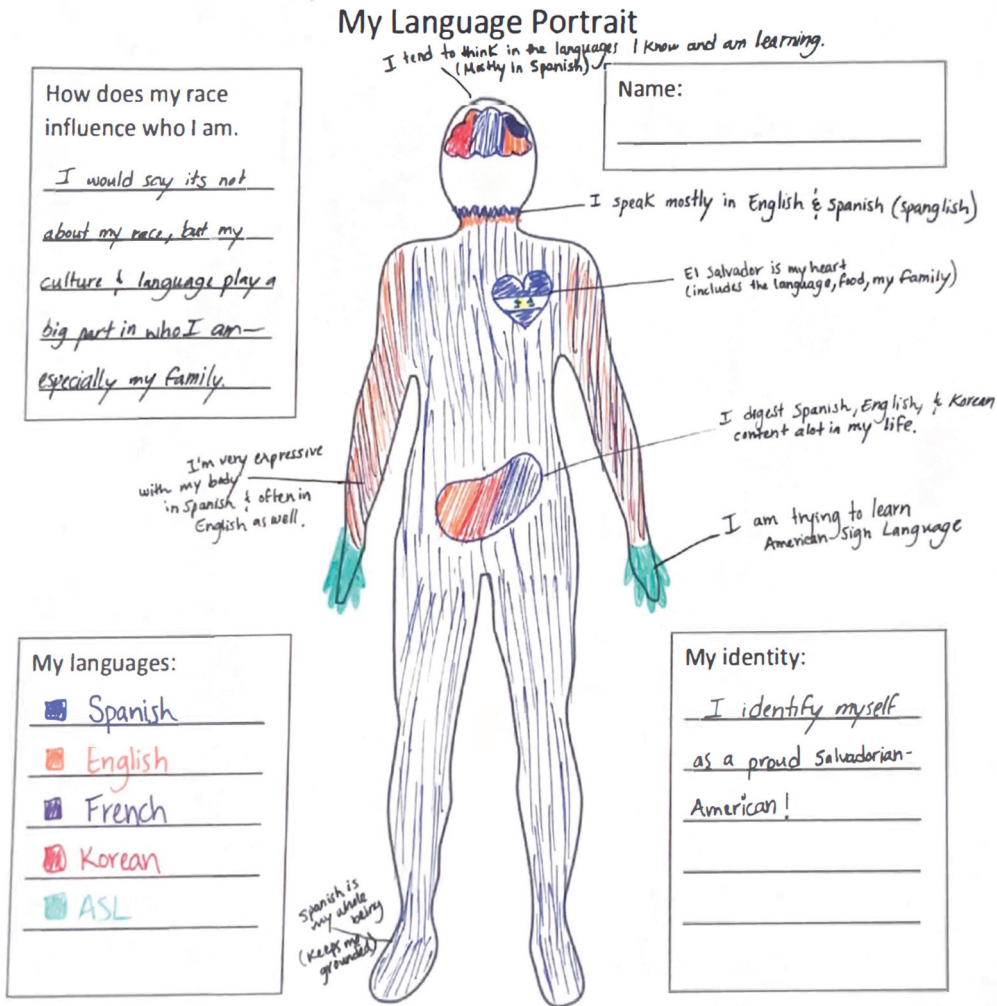 My Language Portrait
I tend to think in the languages I know and am learning.
(Mostly in Spanish)
How does my race
influence who I am.
I would say its not
about my race, but my
culture & language play a
big part in who I am—
especially my family.
Name:
I speak mostly in English & Spanish (spanglish)
El Salvador is my heart
(includes the language, food, my family)
I digest Spanish, English, & Korean
content alot in my life.
I'm very expressive
with my body
in Spanish & often in
English as well.
I am trying to learn
American Sign Language
My languages:
Spanish
English
French
Korean
ASL
Spanish is
my whole
being
(keeps me
grounded)
My identity:
I identify myself
as a proud Salvadorian-
American!